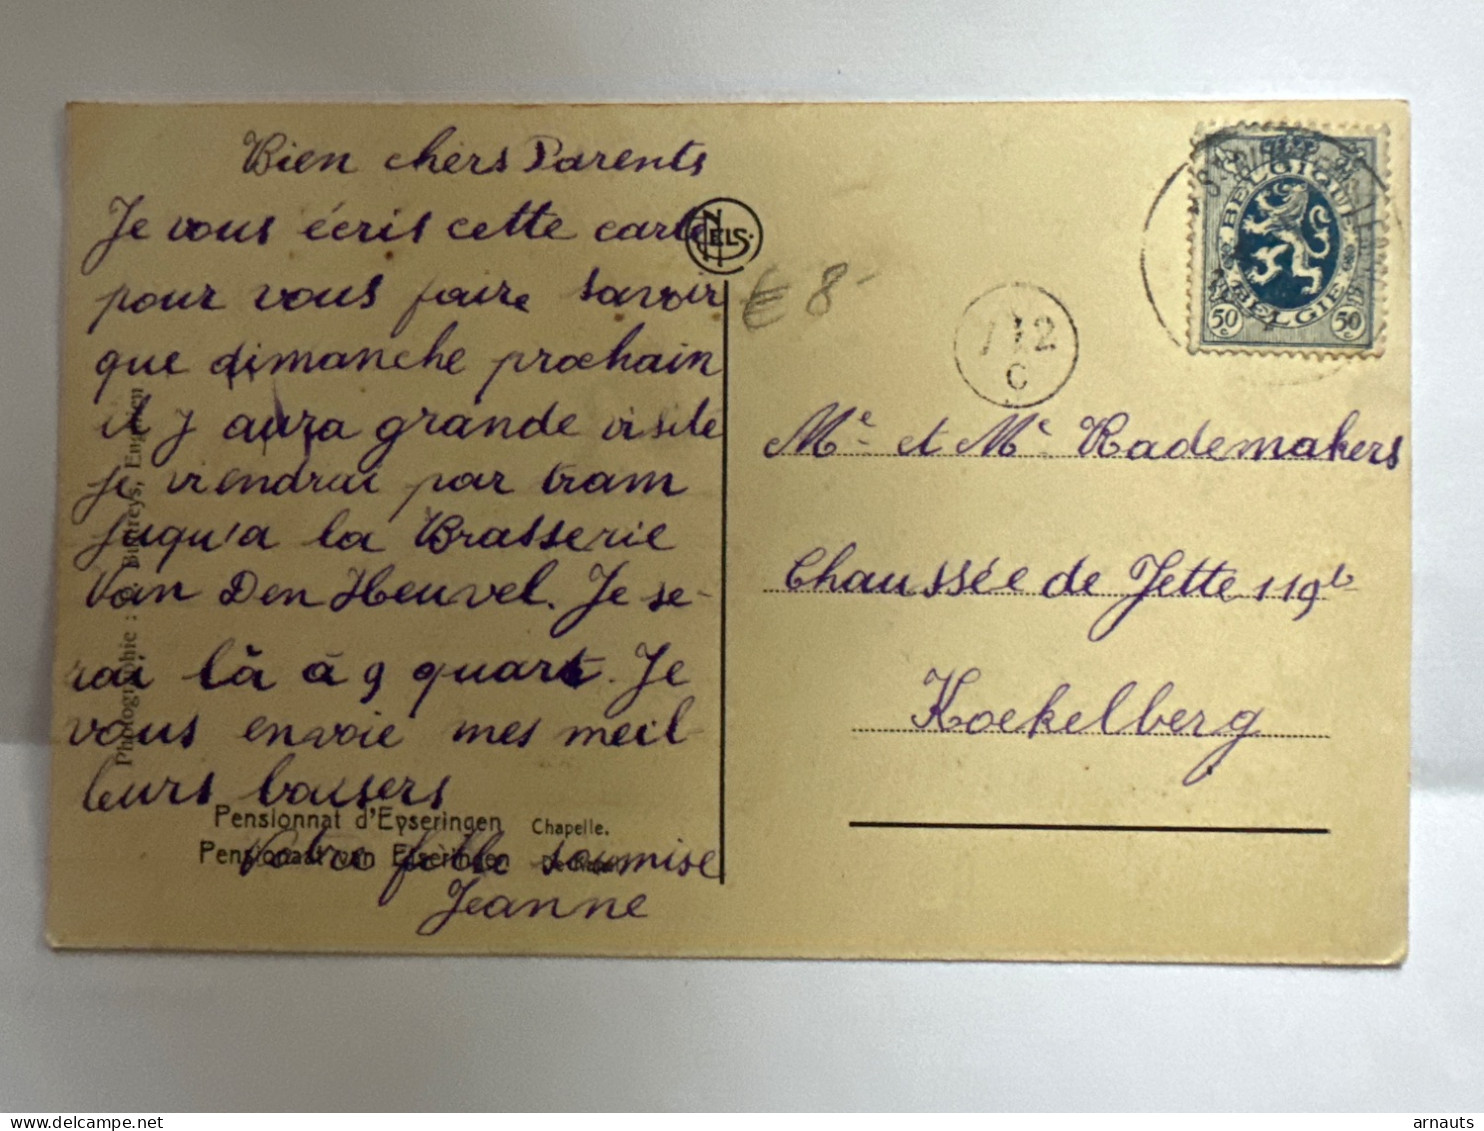 Bien chers Parents
Je vous écris cette carte
pour vous faire savoir
que dimanche prochain
il y aura grande visite
je viendrai par tram
jusqu'a la Brasserie
Van Den Heuvel. Je se-
rai là à 9 quart. Je
vous envoie mes meil-
leurs baisers
Votre fille soumise
Jeanne
Pensionnat d'Eyseringen Chapelle.
Pensionaat van Eiseringen
Photographie : Buffreys, Enghien
NELS.
€ 8-
712
C
BELGIQUE
BELGIE
50c 50c
Mr et Me Rademakers
Chaussée de Jette 119b
Koekelberg
arnauts